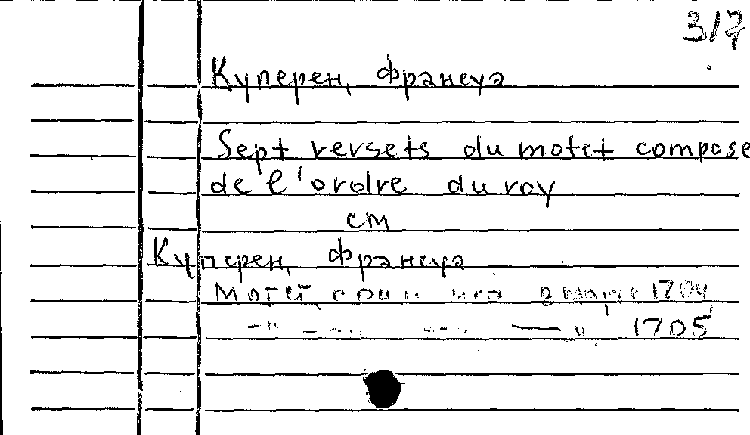 317
Куперен, Франсуа
Sept versets du motet compose
de l'ordre du roy
см
Куперен, Франсуа
1704
—"— —"— 1705